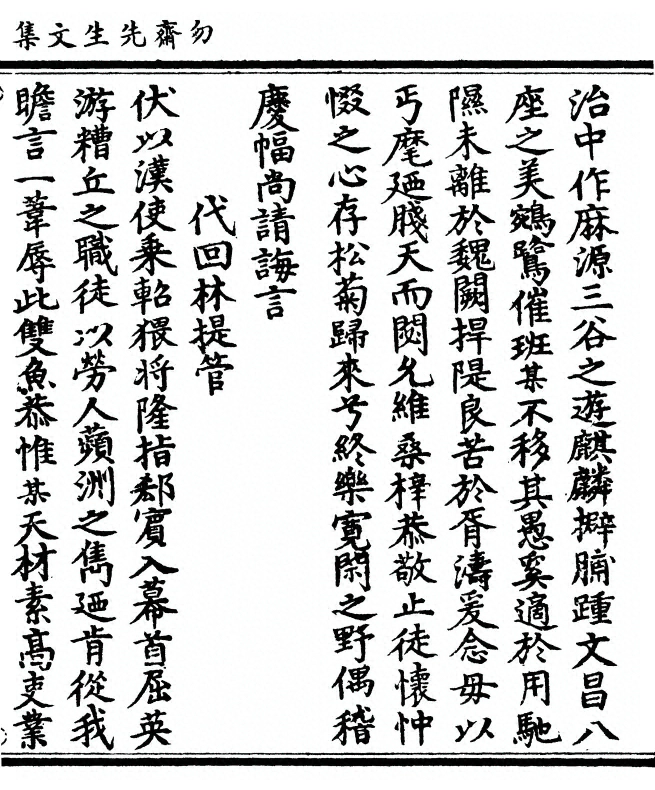 勿齋先生文集
治中作麻源三谷之遊麒麟擗脯踵文昌八
座之美鵷鷺催班某不移其愚奚適於用馳
隰未離於魏闕捍隄良苦於胥濤爰念毋以
丐麾廼牋天而閔允維桑梓恭敬止徒懷忡
惙之心存松菊歸來兮終樂寬閑之野偶稽
慶幅尚請誨言
代回林提管
伏以漢使乗軺猥將隆指郄賓入幕首屈英
游糟丘之職徒以勞人蘋洲之雋廼肯從我
瞻言一葦辱此雙魚恭惟某天材素高吏業